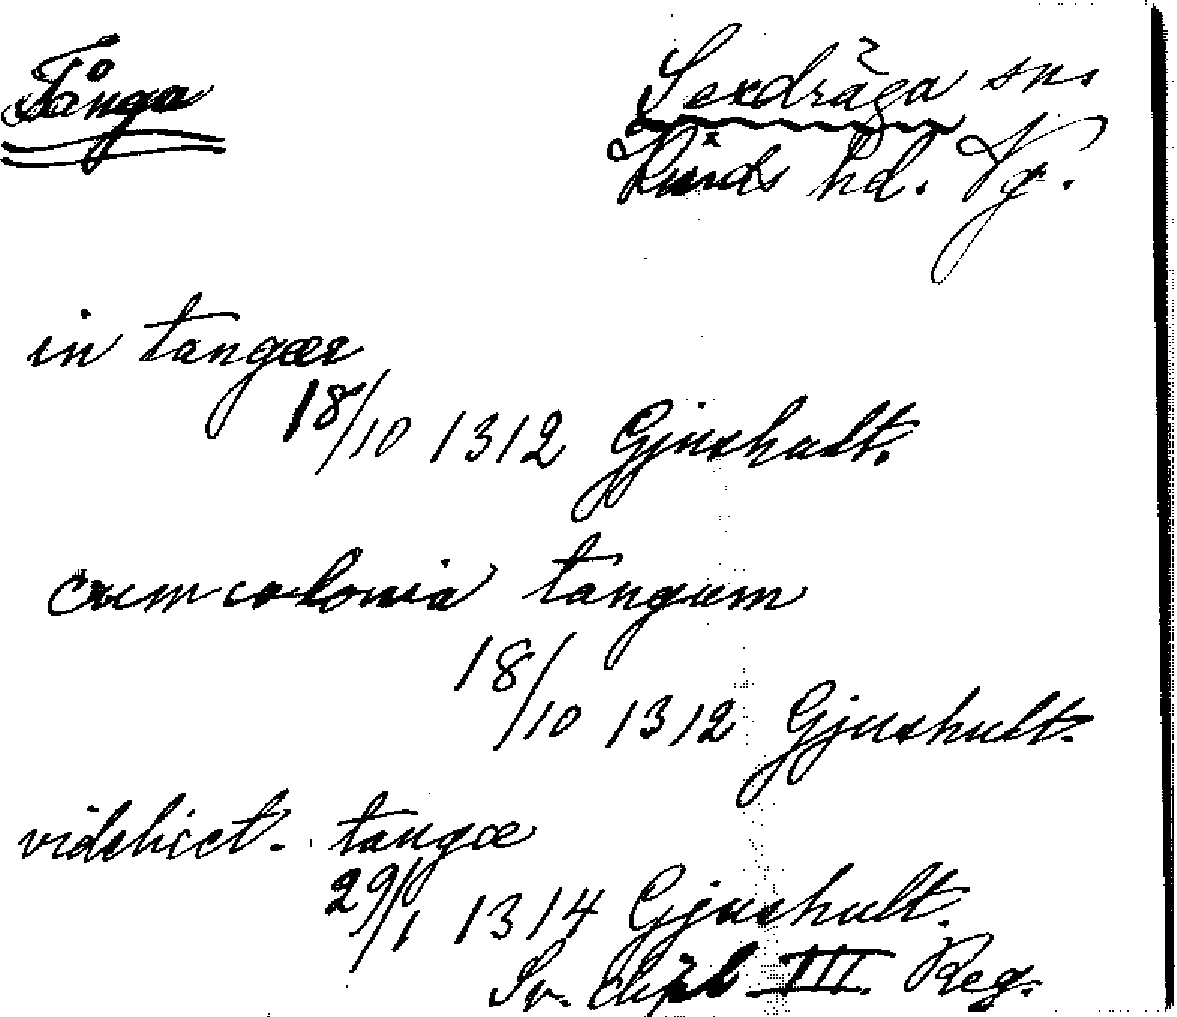 Tånga
Sexdräga sn.
Kinds hd. Vg.
in tangær
18/10 1312 Gjushult.
cum colonia tangum
18/10 1312 Gjushult.
videlicet. tangæ
29/1 1314 Gjushult.
Sv. dipl. III. Reg.